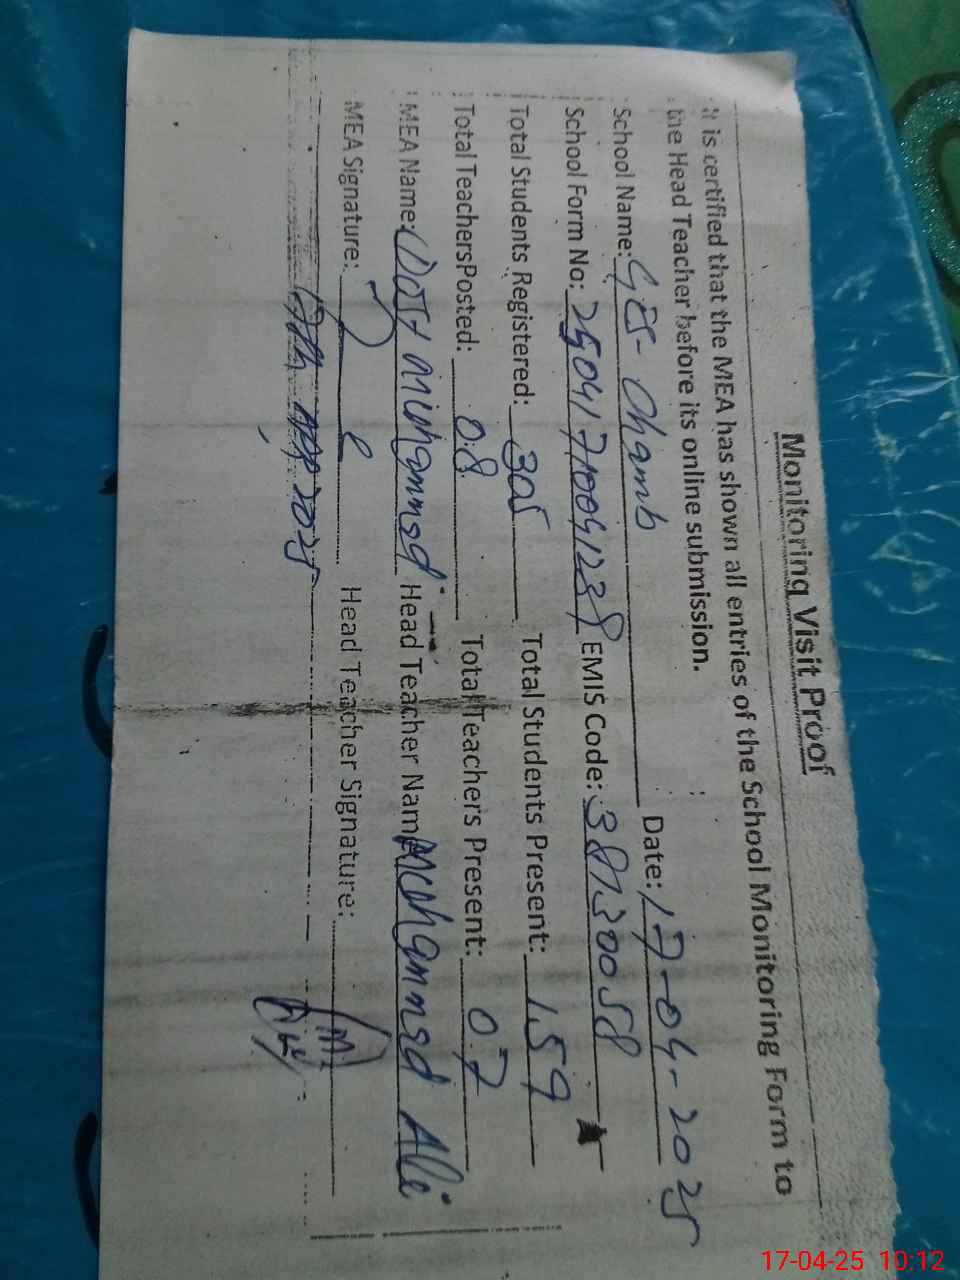 Monitoring Visit Proof
It is certified that the MEA has shown all entries of the School Monitoring Form to
the Head Teacher before its online submission.
School Name: GES- Chamb Date: 17-04-2025
School Form No: 25041710041238 EMIS Code: 38130058
Total Students Registered: 305 Total Students Present: 159
Total TeachersPosted: 08 Total Teachers Present: 07
MEA Name: Dost Muhammad Head Teacher Nam Muhammad Ali
MEA Signature: Head Teacher Signature:
17th 2025
17-04-25 10:12